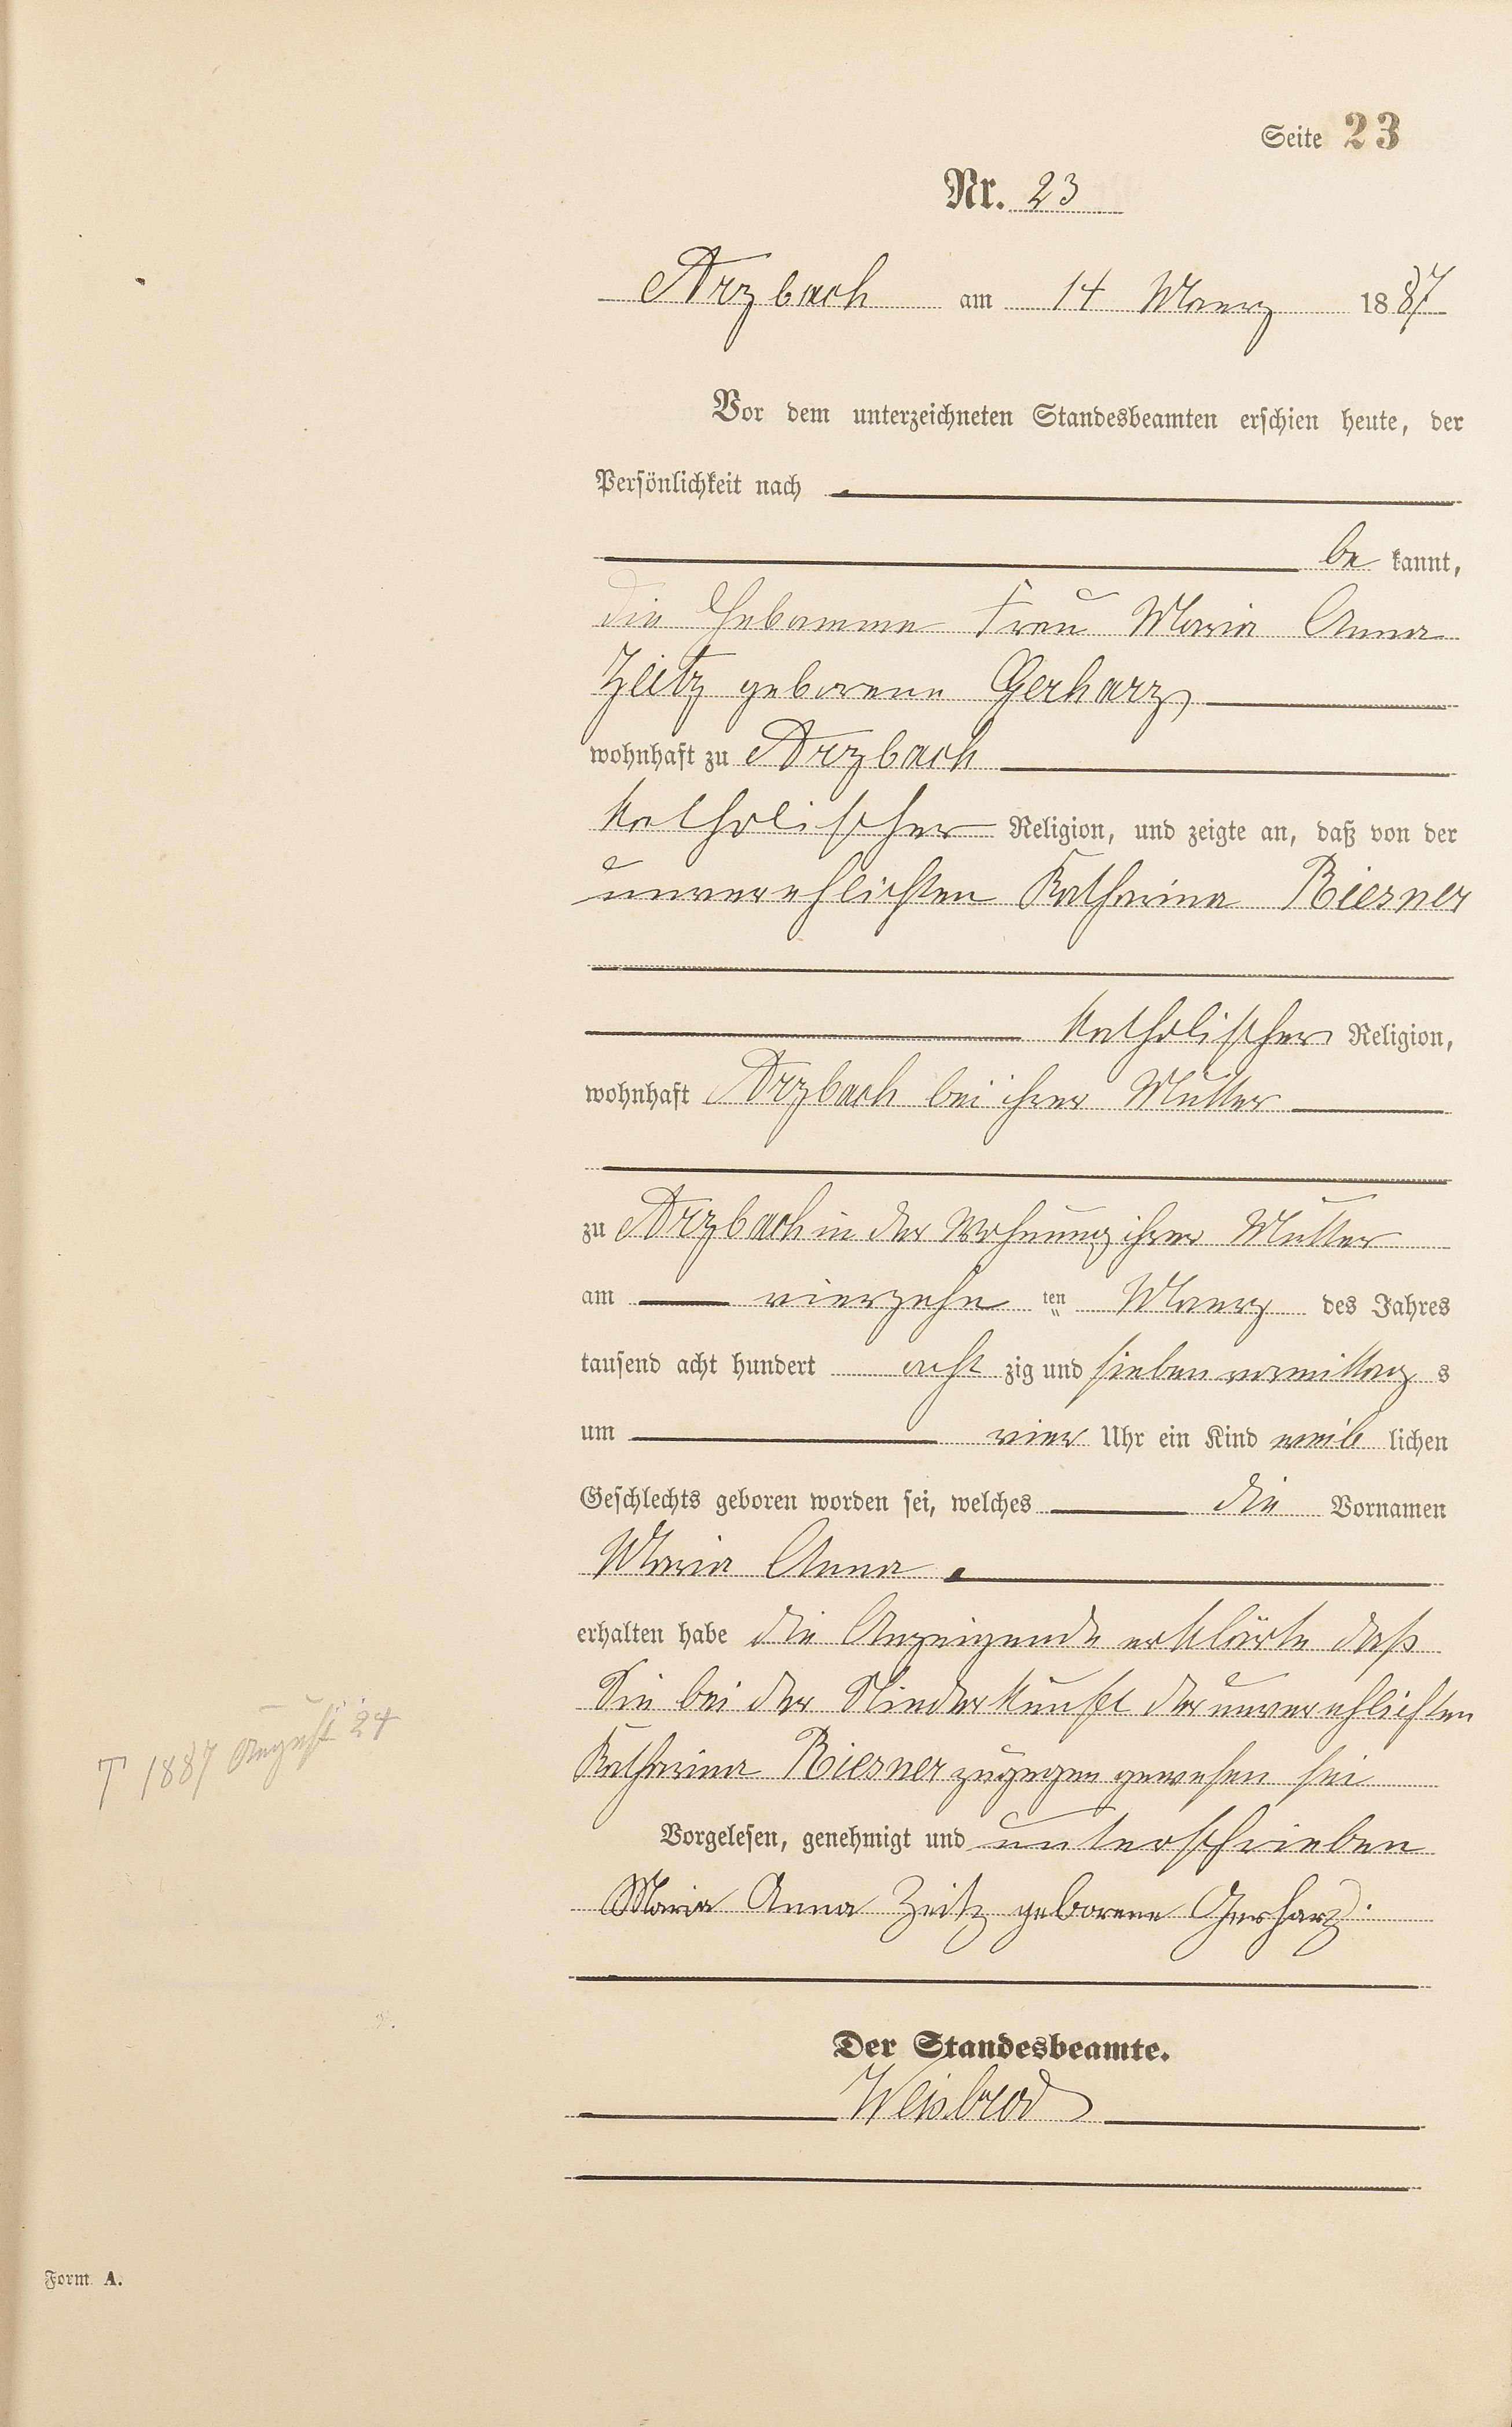 Seite 23
Nr. 23
Arzbach am 14 Maerz 1887
Vor dem unterzeichneten Standesbeamten erschien heute, der
Persönlichkeit nach
be kannt,
die Hebamme Frau Maria Anna
Zeitz geborene Gerharz
wohnhaft zu Arzbach
katholischer Religion, und zeigte an, daß von der
unverehlichten Katharina Biesner
katholischer Religion,
wohnhaft Arzbach bei ihrer Mutter
zu Arzbach in der Wohnung ihrer Mutter
am vierzehn ten Maerz des Jahres
tausend acht hundert acht zig und sieben vormittag s
um vier Uhr ein Kind weib lichen
Geschlechts geboren worden sei, welches die Vornamen
Maria Anna
erhalten habe die Anzeigende erklärte daß
Sie bei der Niederkunft der unverehlichten
Katharina Biesner zugegen gewesen sei
† 1887 August 24
Vorgelesen, genehmigt und unterschrieben
Maria Anna Zeitz geborene Gerharz.
Der Standesbeamte.
Weisbrod
Form. A.